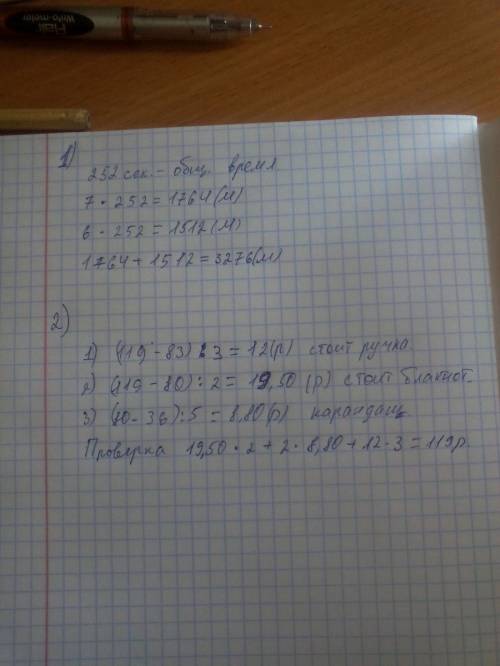 1)
252 сек. - общ. время
7 · 252 = 1764 (м)
6 · 252 = 1512 (м)
1764 + 1512 = 3276 (м)
2)
1) (119 - 83) : 3 = 12 (р) стоит ручка.
2) (119 - 80) : 2 = 19,50 (р) стоит блакнот.
3) (80 - 36) : 5 = 8,80 (р) карандаш.
Проверка 19,50 · 2 + 2 · 8,80 + 12 · 3 = 119 р.